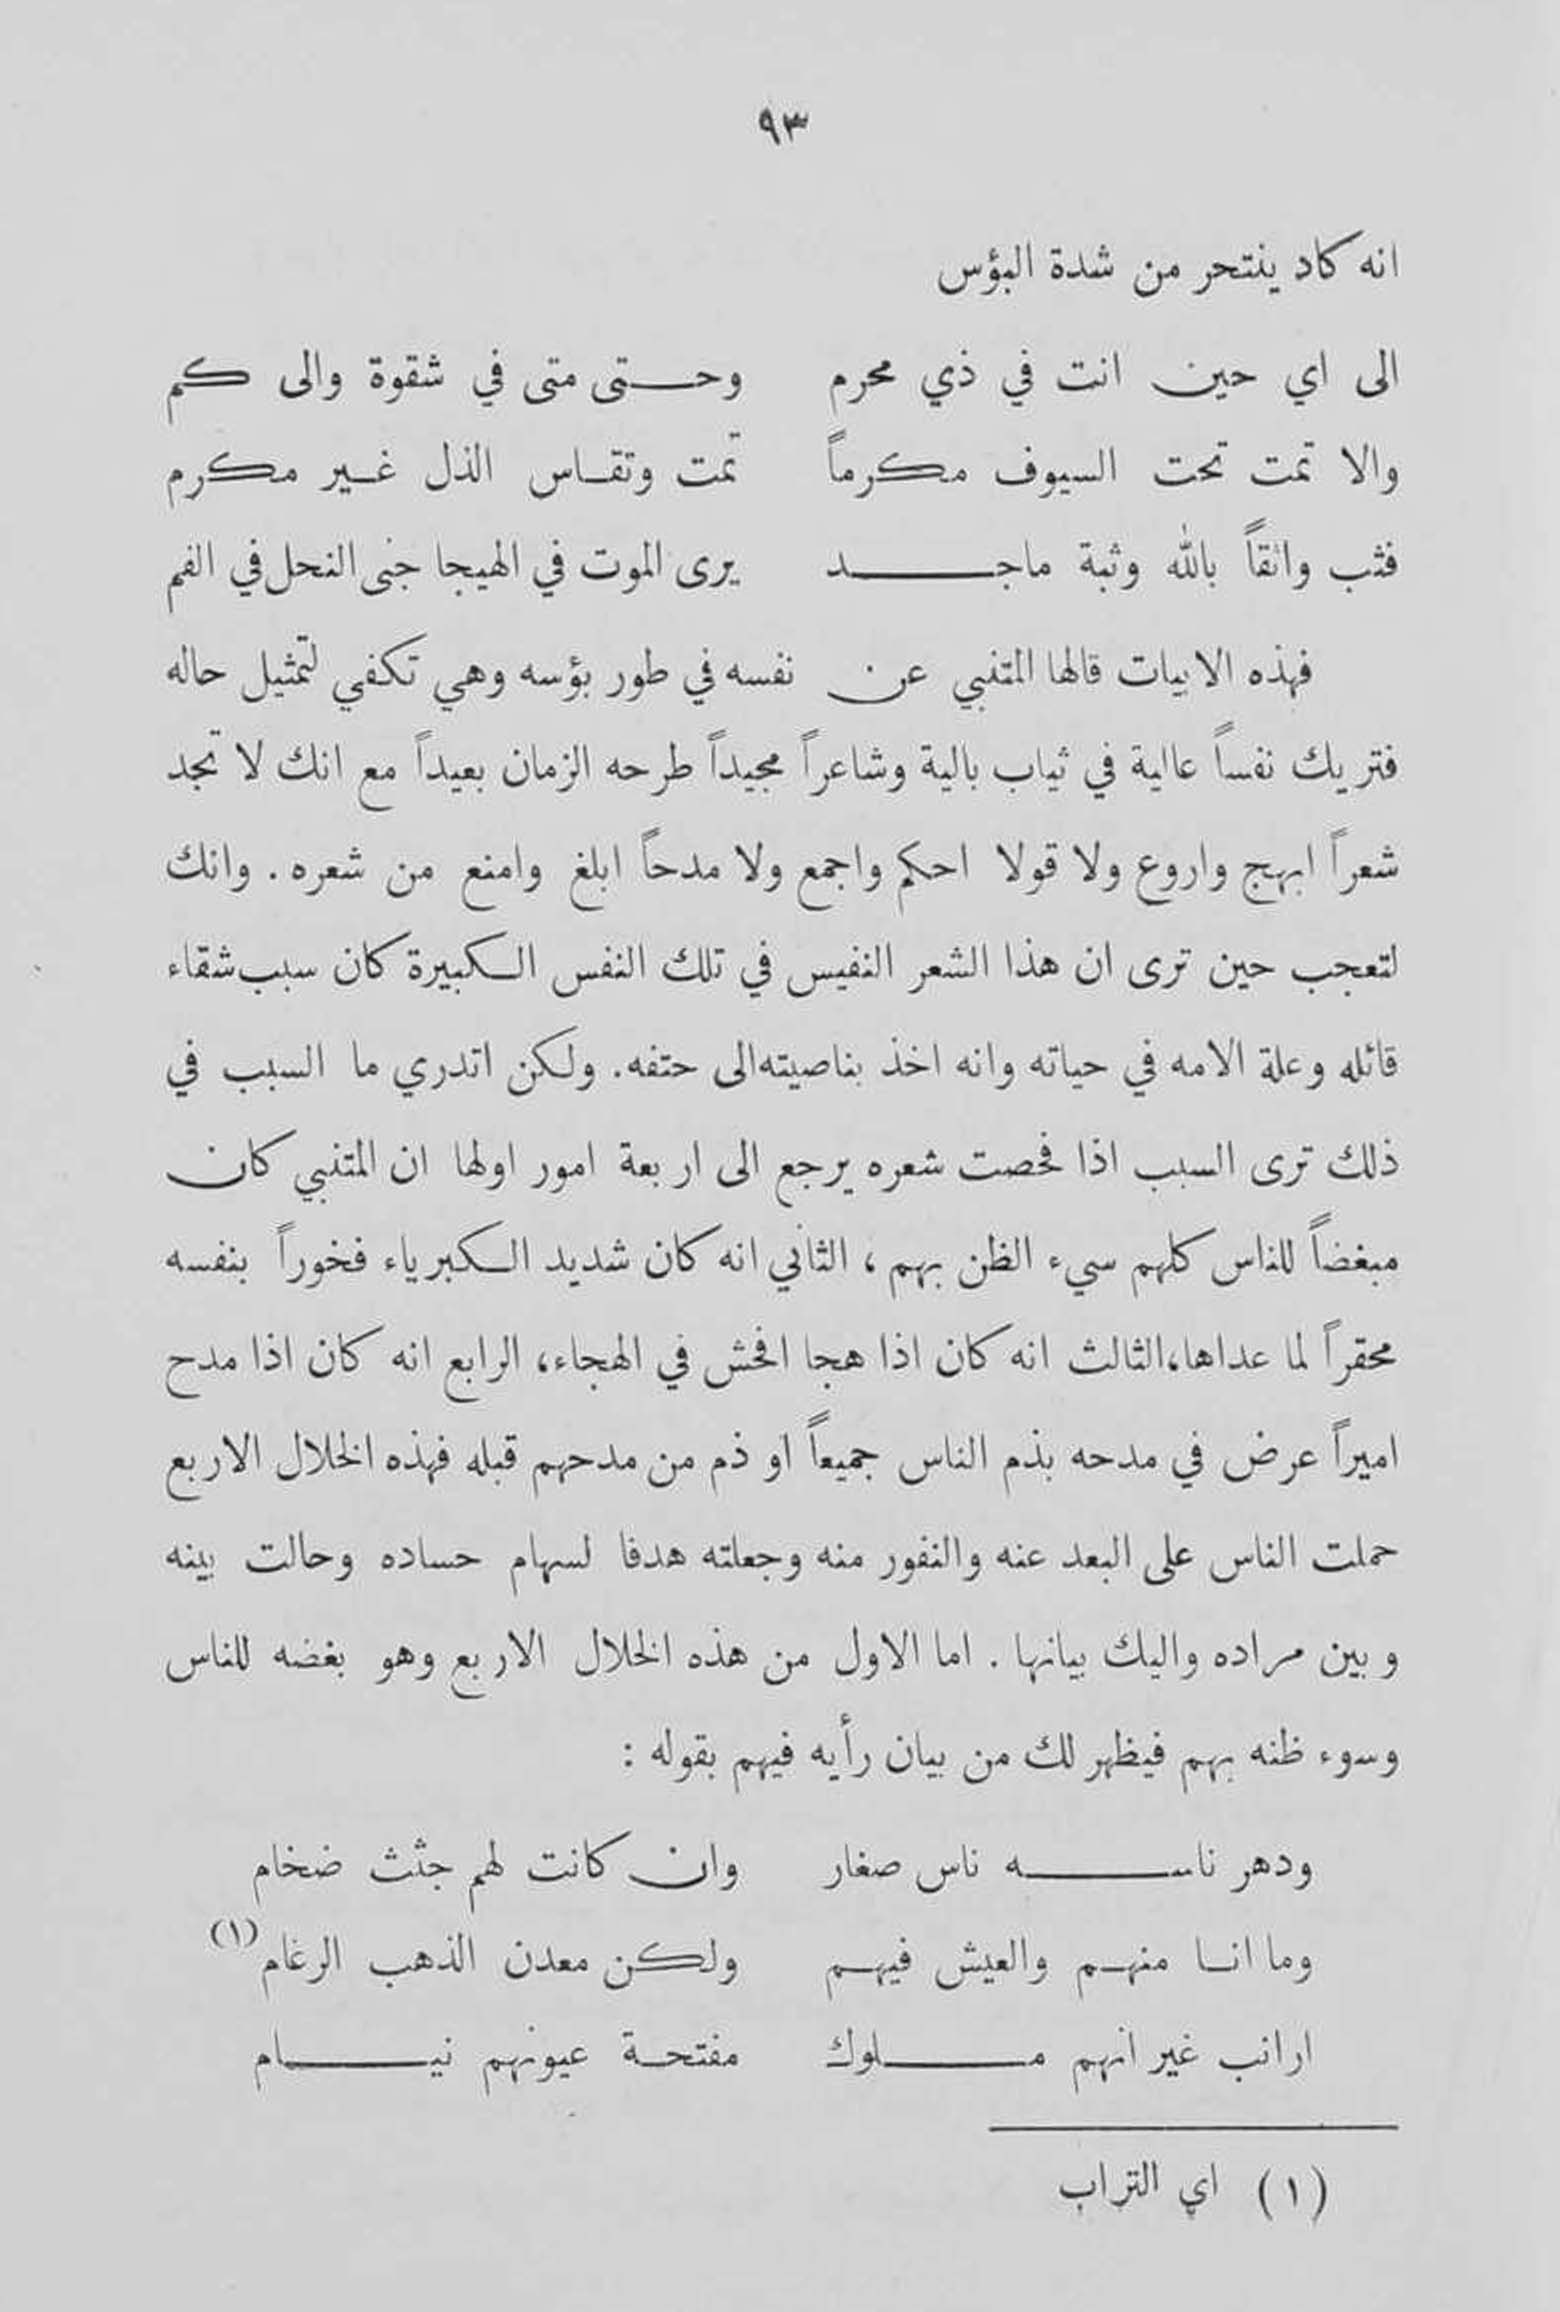 ٩٣
انه كاد ينتحر من شدة البؤس
الى اي حين انت في ذي محرم وحتى متى في شقوة والى كم
والا تمت تحت السيوف مكرماً تمت وتقاس الذل غير مكرم
فثب واثقاً بالله وثبة ماجد يرى الموت في الهيجا جنى النحل في الفم
فهذه الابيات قالها المتنبي عن نفسه في طور بؤسه وهي تكفي لتمثيل حاله
فتريك نفساً عالية في ثياب بالية وشاعراً مجيداً طرحه الزمان بعيداً مع انك لا تجد
شعراً ابهج واروع ولا قولا احكم واجمع ولا مدحاً ابلغ وامنع من شعره . وانك
لتعجب حين ترى ان هذا الشعر النفيس في تلك النفس الكبيرة كان سبب شقاء
قائله وعلة الامه في حياته وانه اخذ بناصيته الى حتفه. ولكن اتدري ما السبب في
ذلك ترى السبب اذا فحصت شعره يرجع الى اربعة امور اولها ان المتنبي كان
مبغضاً للناس كلهم سيء الظن بهم ، الثاني انه كان شديد الكبرياء فخوراً بنفسه
محقراً لما عداها، الثالث انه كان اذا هجا افحش في الهجاء، الرابع انه كان اذا مدح
اميراً عرض في مدحه بذم الناس جميعاً او ذم من مدحهم قبله فهذه الخلال الاربع
حملت الناس على البعد عنه والنفور منه وجعلته هدفا لسهام حساده وحالت بينه
وبين مراده واليك بيانها . اما الاول من هذه الخلال الاربع وهو بغضه للناس
وسوء ظنه بهم فيظهر لك من بيان رأيه فيهم بقوله :
ودهر ناسه ناس صغار وان كانت لهم جثث ضخام
وما انا منهم والعيش فيهم ولكن معدن الذهب الرغام (١)
ارانب غير انهم ملوك مفتحة عيونهم نيام
(١) اي التراب